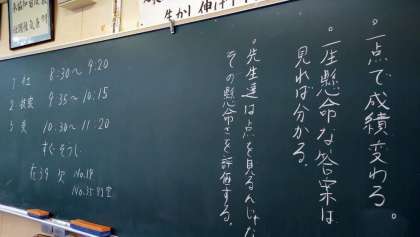 。一点で成績変わる。
。一生懸命な答案は
見れば分かる。
。先生達は点を見るんじゃな
その懸命さを評価する。
1 社 8:30〜9:20
2 技家 9:35〜10:15
3 英 10:30〜11:20
すぐそうじ
在39 欠 No.18
No.35